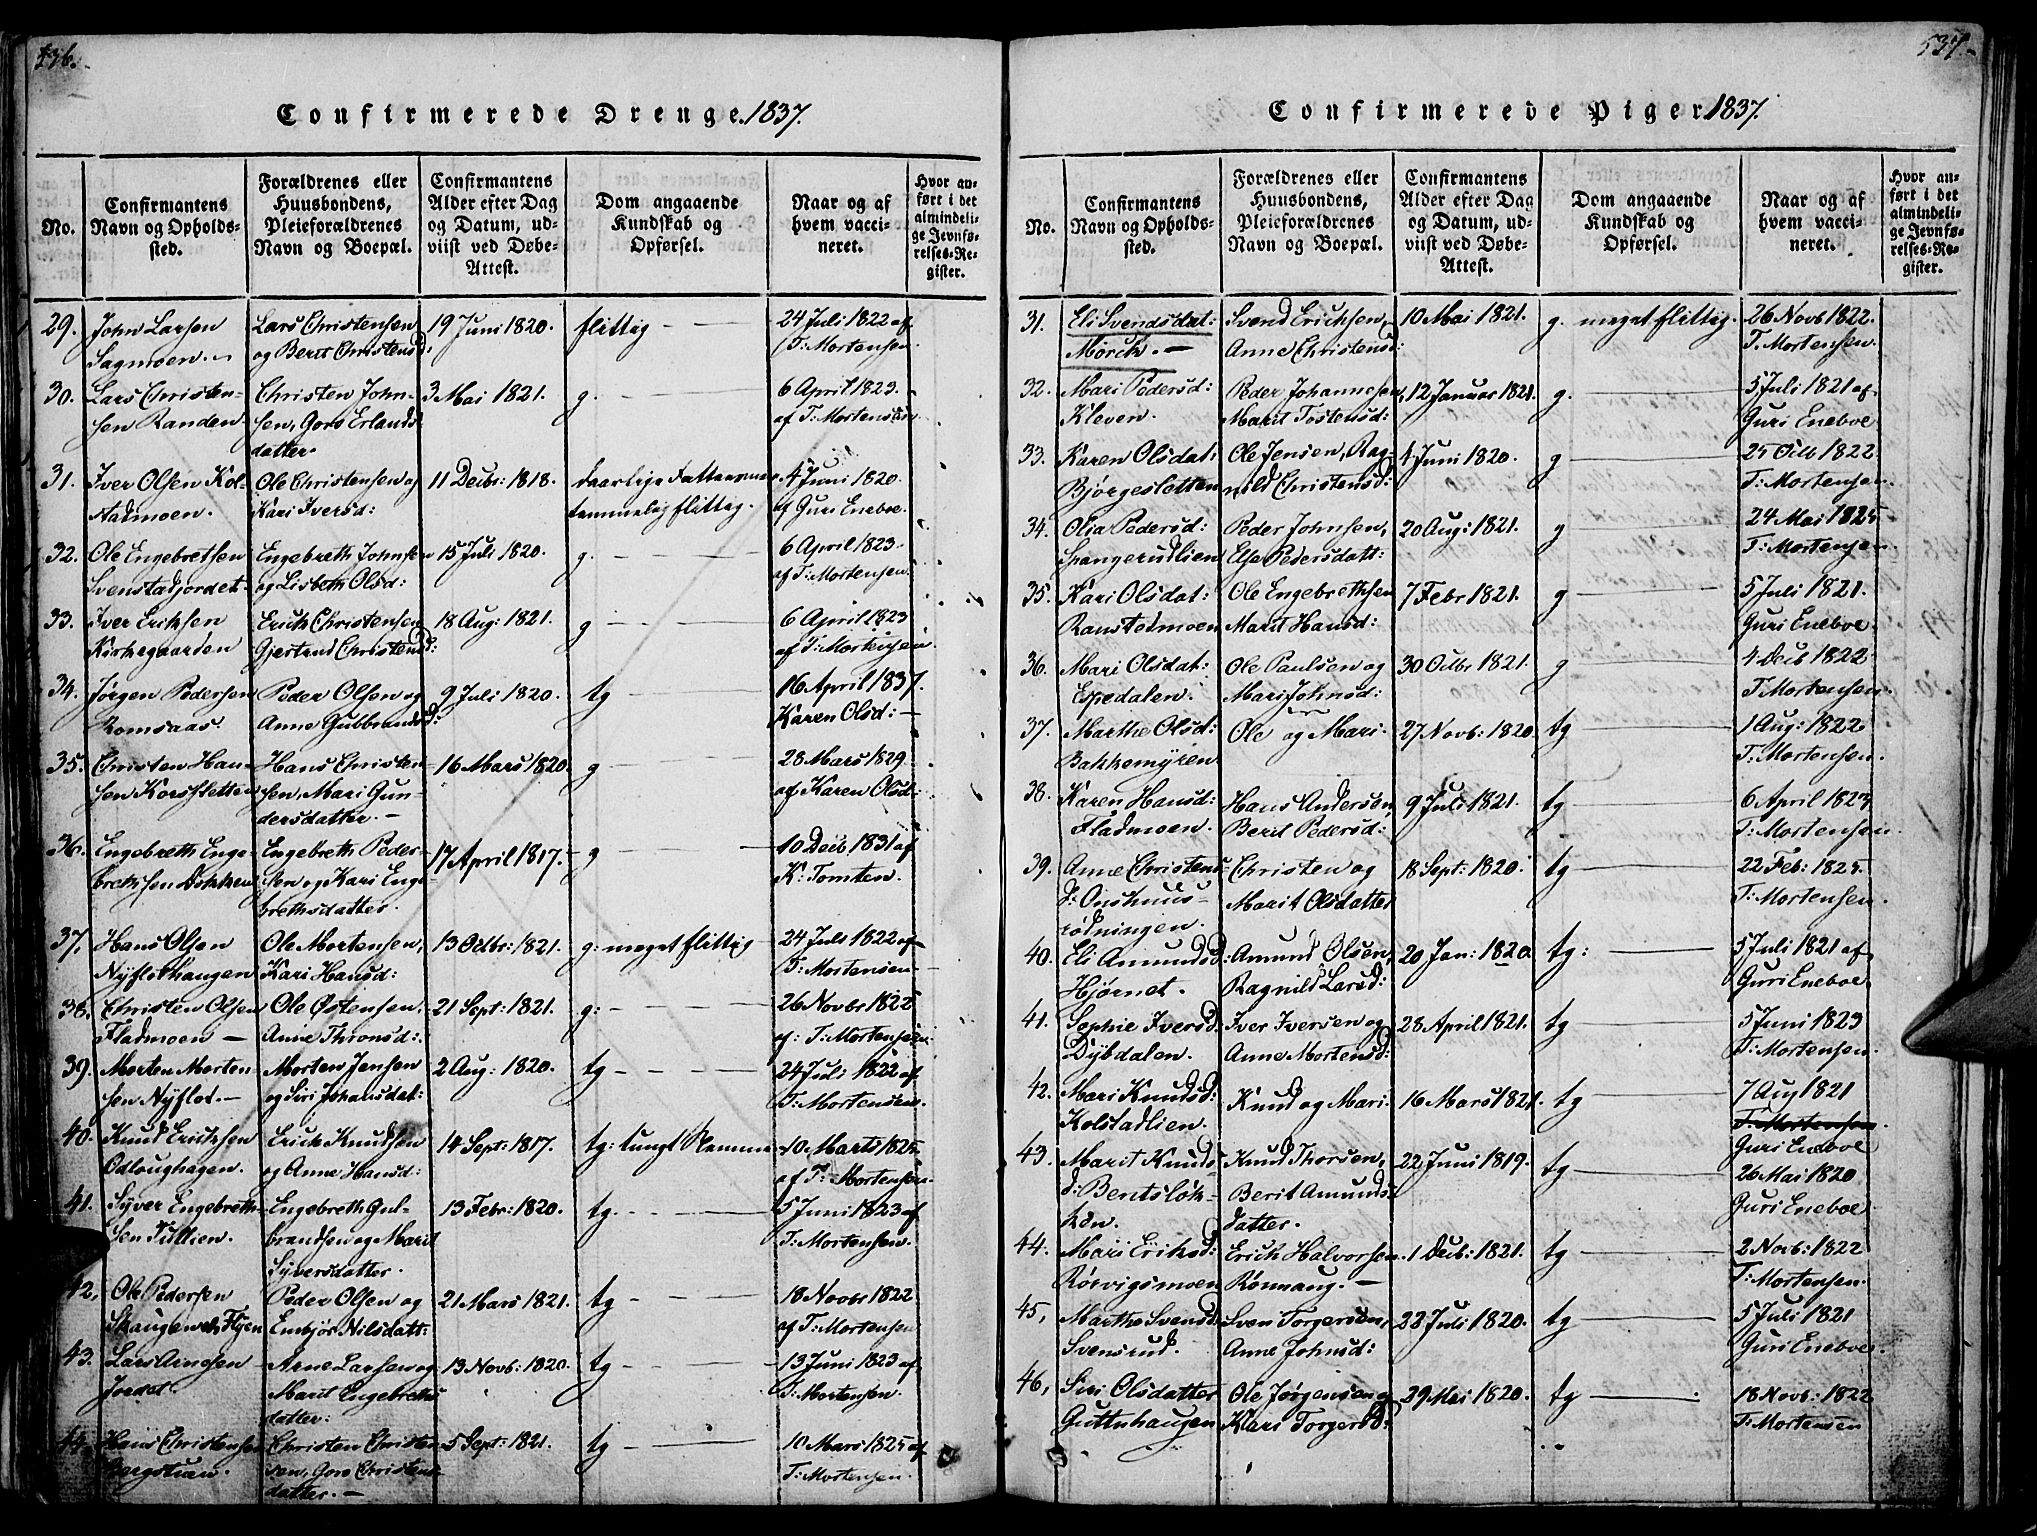 536.
Confirmerede Drenge. 1837.
No.
Confirmantens Navn og Opholdssted.
Forældrenes eller Huusbondens, Pleieforældrenes Navn og Boepæl.
Confirmantens Alder efter Dag og Datum, udviist ved Døbe-Attest.
Dom angaaende Kundskab og Opførsel.
Naar og af hvem vaccineret.
Hvor anført i det almindelige Jevnførelses-Register.
29. John Larsen Lars Christensen 19 Juni 1820. flittig 24 Juli 1822 af
Sagmoen. og Berit Christensd: T: Mortensen.
30. Lars Christen- Christen John- 3 Mai 1821. g. 6 April 1823.
sen Randen sen, Goro Erlands af T: Mortensen
datter.
31. Iver Olsen Kol- Ole Christensen og 11 Decbr: 1818. daarlige Fatteevner 4 Juni 1820.
stadmoen. Kari Iversd: temmelig flittig. af Guri Eneboe.
32. Ole Engebretsen Engebreth Johnsen 15 Juli 1820. g. 6 April 1823.
Svenstadjordet og Lisbeth Olsd: af T: Mortensen.
33. Iver Eriksen Erich Christensen 18 Aug: 1821. g 6 April 1823
Kirkegaarden Gjertrud Christensd: af T: Mortensen
34. Jørgen Pedersen Peder Olsen og 9 Juli 1820. tg 16 April 1837.
Romsaas. Anne Gubbrandsd: Karen Olsd:
35. Christen Han- Hans Christen- 16 Mars 1820. g 28 Mars 1829.
sen Korssletten sen, Mari Gun- af Karen Olsd:
dersdatter.
36. Engebreth Enge- Engebreth Peder- 17 April 1817. g 10 Decb 1831 af
brethsen Dokken sen og Kari Enge- K: Tomten.
brethsdatter.
37. Hans Olsen Ole Mortensen, 13 Octbr: 1821. g: meget flittig 24 Juli 1822 af
Nyflothaugen Kari Hansd: T: Mortensen
38. Christen Olsen Ole Østensen, 21 Sept: 1821. g: 26 Novbr 1822
Fladmoen Anne Thronsd: af: T: Mortensen
39. Morten Morten- Morten Jensen 2 Aug: 1820. tg 24 Juli 1822 af
sen Nyflot. og Siri Johansdat: T: Mortensen.
40. Knud Ericksen Erich Knudsen 14 Sept: 1817. tg: tungt Nemme 10 Marts 1825
Odloughagen. og Anne Hansd: af T: Mortensen
41. Syver Engebreth- Engebreth Gul- 13 Febr: 1820. tg. 5 Juni 1823 af
sen brandsen og Marit T: Mortensen.
Syversdatter.
42. Ole Pedersen Peder Olsen og 21 Mars 1821. tg 18 Novbr 1822
Embjør Nilsdatt: af T: Mortensen
43. Lars Arnesen Arne Larsen og 13 Novb: 1820. tg 13 Juni 1823 af
Jordet. Marit Engebreths T: Mortensen.
datter:
44. Hans Christensen Christen Christen 5 Sept: 1821. tg 10 Mars 1825 af
Bergstuen. sen, Goro Christens T: Mortensen.
datter.
537.
Confirmerede Piger 1837.
No.
Confirmantens Navn og Opholdssted.
Forældrenes eller Huusbondens, Pleieforældrenes Navn og Boepæl.
Confirmantens Alder efter Dag og Datum, udviist ved Døbe-Attest.
Dom angaaende Kundskab og Opførsel.
Naar og af hvem vaccineret.
Hvor anført i det almindelige Jevnførelses-Register.
31. Eli Svendsdat: Svend Ericksen, 10 Mai 1821. g. meget flittig. 26 Novb 1822.
Mørch. Anne Christensd: T. Mortensen.
32. Mari Pedersd: Peder Johannesen, 12 Januar 1821. g. 5 Juli 1821 af
Kleven. Marit Tostensd: Guri Eneboe
33. Karen Olsdat: Ole Jensen, Rag- 1 Juni 1820. g 25 Octb 1822
Bjørgesletten nild Christensd: T: Mortensen.
34. Olia Pedersd: Peder Johnsen, 20 Aug: 1821. g 24 Mai 1825
Spangerudlien Else Pedersdatt: T: Mortensen
35. Kari Olsdat: Ole Engebrethsen 7 Febr 1821. g 5 Juli 1821.
Ranstadmoen Marit Hansd: Guri Eneboe.
36. Mari Olsdat: Ole Paulsen og 30 Octbr 1821. g 4 Decb 1822
Espedalen. Mari Johnsd: T. Mortensen.
37. Marthe Olsd: Ole og Mari. 27 Novb: 1820 tg 1 Aug: 1822
Bakkemyren T. Mortensen.
38. Karen Hansd: Hans Andersen, 9 Juli 1821. tg 6 April 1823
Fladmoen. Berit Pedersd: T: Mortensen.
39. Anne Christens- Christen og 18 Sept: 1820. tg 22 Feb: 1825.
d: Onshuus- Marit Olsdatter T: Mortensen.
rødningen.
40. Eli Amundsd: Amund Olsen, 20 Jan: 1820. tg: 5 Juli 1821 af
Hjørnet. Ragnild Larsd: Guri Eneboe
41. Sophie Iversd. Iver Iversen og 28 April 1821. tg 5 Juni 1823
Dybdalen. Anne Mortensd: T. Mortensen.
42. Mari Knudsd: Knud og Mari. 16 Mars 1821. tg 7 Aug 1821
Kolstadlien. T. Mortensen.
Guri Eneboe
43. Marit Knuds- Knud Thorsen, 22 Juni 1819. tg 26 Mai 1820
d: Bentsløk- Berit Amunds Guri Eneboe
ken. datter.
44. Mari Eriksd: Erich Halvorsen. 1 Decb: 1821. tg 2 Novb: 1822
Rørvigsmoen Rønnaug. T: Mortensen.
45, Marthe Svensd Sven Torgersen, 22 Juli 1820. tg 5 Juli 1821
Svensrud. Anne Johnsd: Guri Eneboe.
46, Siri Olsdatter Ole Jørgensen og 29 Mai 1820. tg 18 Novb: 1822
Guttuhaugen Kari Torgersd: T: Mortensen